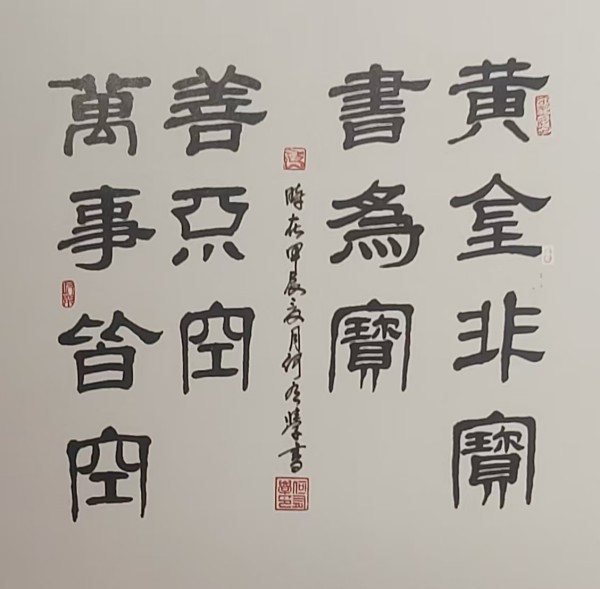 黄金非寶
書為寶
萬事皆空
善不空
時在甲辰夏月何書